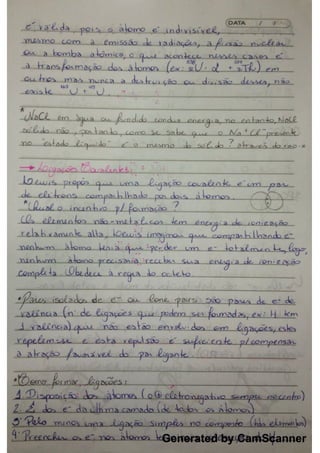 DATA / /
é válida, pois o átomo é indivisível,
mesmo com a emissão de radiações, a fissão nuclear
ou a bomba atômica, o que acontece nesses casos é
a transformação dos átomos (ex: U → α + Th) em
outros mas nunca a destruição ou divisão desses, não
existe U + U.
* NaCl em água ou fundido conduz energia, no entanto, NaCl
sólido não, portanto, como se sabe que o Na+Cl- presente
no "estado líquido" é o mesmo do sólido? através do raio-x
→ Ligações Covalentes:
Lewis propôs que uma ligação covalente é um par
de elétrons compartilhado por dois átomos.
* Qual o incentivo p/ formação?
Os elementos não-metálicos têm energia de ionização
relativamente alta, Lewis imaginou que compartilhando e-
nenhum átomo teria que perder um e- totalmente, logo,
nenhum átomo precisaria receber sua energia de ionização
completa. Obedece à regra do octeto.
* Pares isolados de e- ou lone pairs: são pares de e- de
valência (nº de ligações que podem ser formadas, ex: H tem
1 valência) que não estão envolvidos em ligações, estes
repelem-se e esta repulsão é suficiente p/ compensar
a atração favorável do par ligante.
* Como formar ligações:
1. Disposição dos átomos (o eletronegativo sempre no centro)
2. Σ dos e- da última camada (de todos os átomos)
3. Pelo menos uma ligação simples no composto (dos elementos)
4. Preencher os e- nos átomos
Generated by CamScanner